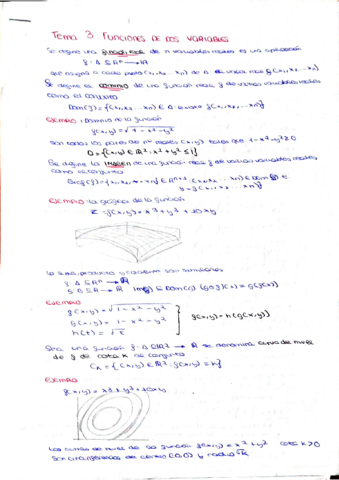 Tema 3 FUNCIONES DE DOS VARIABLES
Se define una función real de n variables reales es una aplicación
f: A ⊆ ℝⁿ → ℝ
que asigna a cada punto (x₁, x₂, ... xn) de A un valor real f(x₁, x₂ ... xn)
Se define el DOMINIO de una función real f de varias variables reales
como el conjunto
EJEMPLO: Dominio de la función
f(x,y) = √1 - x² - y²
Son todos los pares de nº reales (x,y) tales que 1 - x² - y² ≥ 0
D = {(x,y) ∈ ℝ² : x² + y² ≤ 1}
Se define la IMAGEN de una función real f de varias variables reales
como el conjunto
EJEMPLO: La gráfica de la función
z = f(x,y) = x³ + y³ + 20xy
La suma, producto y cociente son similares
f: A ⊆ ℝⁿ → ℝ
EJEMPLO
f(x,y) = √1 - x² - y²
g(x,y) = 1 - x² - y²
f(x,y) = h(g(x,y))
h(t) = √t
Sea una función f: D ⊆ ℝ² → ℝ se denomina curva de nivel
de f de cota k al conjunto
Cₖ = {(x,y) ∈ ℝ² : f(x,y) = k}
EJEMPLO
f(x,y) = x³ + y³ + 20xy
Las curvas de nivel de la función f(x,y) = x² + y² cota k > 0
son circunferencias de centro (0,0) y radio √k